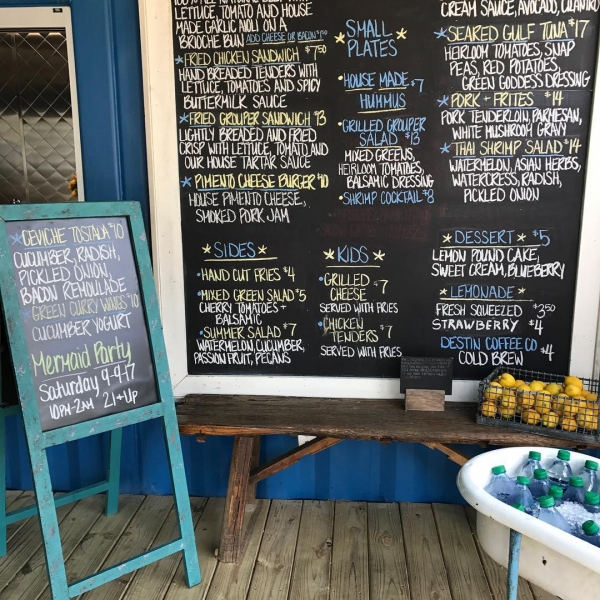 CEVICHE TOSTADA $10
CUCUMBER, RADISH,
PICKLED ONION,
BACON REMOULADE
GREEN CURRY WINGS $10
CUCUMBER YOGURT
Mermaid Party
Saturday 9-9-17
10PM-2AM 21+UP
LETTUCE, TOMATO AND HOUSE
MADE GARLIC MOJO ON A
BRIOCHE BUN ADD CHEESE OR BACON
FRIED CHICKEN SANDWICH $7.50
HAND BREADED TENDERS WITH
LETTUCE, TOMATOES AND SPICY
BUTTERMILK SAUCE
FRIED GROUPER SANDWICH $13
LIGHTLY BREADED AND FRIED
CRISP WITH LETTUCE, TOMATO AND
OUR HOUSE TARTAR SAUCE
PIMENTO CHEESE BURGER $10
HOUSE PIMENTO CHEESE,
SMOKED PORK JAM
SIDES
HAND CUT FRIES $4
MIXED GREEN SALAD $5
CHERRY TOMATOES +
BALSAMIC
SUMMER SALAD $7
WATERMELON, CUCUMBER,
PASSION FRUIT, PECANS
SMALL
PLATES
HOUSE MADE $7
HUMMUS
GRILLED GROUPER
SALAD $13
MIXED GREENS,
HEIRLOOM TOMATOES,
BALSAMIC DRESSING
SHRIMP COCKTAIL $8
KIDS
GRILLED $7
CHEESE
SERVED WITH FRIES
CHICKEN $7
TENDERS
SERVED WITH FRIES
CREAM SAUCE, AVOCADO, CILANTRO
SEARED GULF TUNA $17
HEIRLOOM TOMATOES, SNAP
PEAS, RED POTATOES,
GREEN GODDESS DRESSING
PORK + FRITES $14
PORK TENDERLOIN, PARMESAN,
WHITE MUSHROOM GRAVY
THAI SHRIMP SALAD $14
WATERMELON, ASIAN HERBS,
WATERCRESS, RADISH,
PICKLED ONION
DESSERT $5
LEMON POUND CAKE,
SWEET CREAM, BLUEBERRY
LEMONADE
FRESH SQUEEZED $3.50
STRAWBERRY $4
DESTIN COFFEE CO $4
COLD BREW